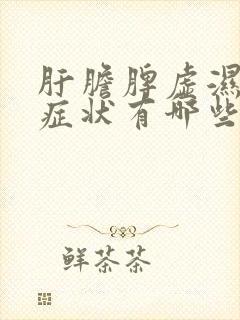 肝膽脾虛濕
症状有哪些
鲜茶茶